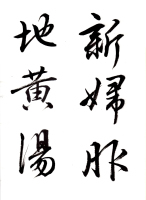 新婦服
地黃湯